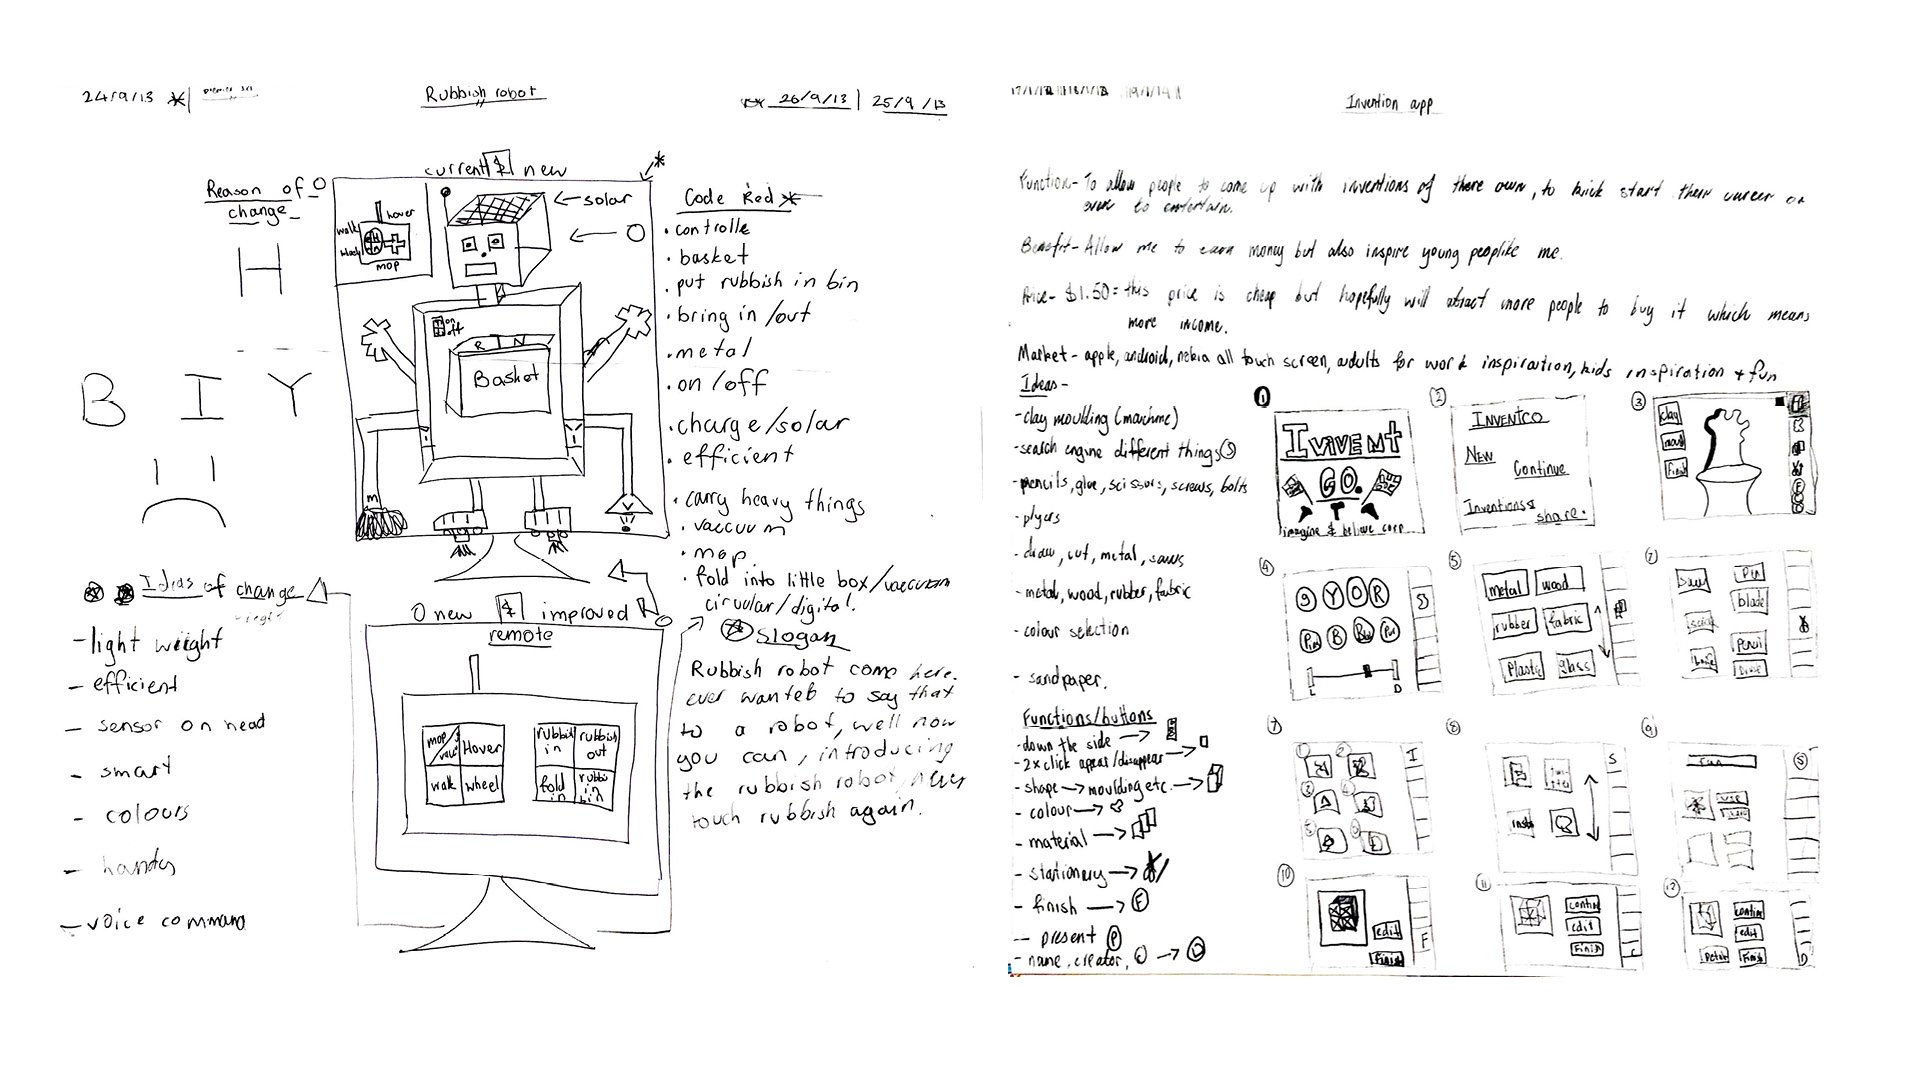 24/9/13
Rubbish robot
26/9/13 | 25/9/13
current $ new
Reason of O
change
H
B I Y
hover
walk
mop
solar
O
on
off
R I N
Basket
M
Code Red
• controlle
• basket
• put rubbish in bin
• bring in /out
• metal
• on /off
• charge/solar
• efficient
• carry heavy things
• vaccuum
• mop
• fold into little box/vaccuum
circular/digital.
Ideas of change
- light weight
- efficient
- sensor on head
- smart
- colours
- handy
- voice command
O new $ improved
remote
mop
Hover
walk wheel
rubbish in
rubbish out
fold in
rubbi in bin
Slogan
Rubbish robot come here.
ever wanteb to say that
to a robot, well now
you can, introducing
the rubbish robot, never
touch rubbish again.
Invention app
Function- To allow people to come up with inventions of there own, to kick start their career or
even to entertain.
Benefit- Allow me to earn money but also inspire young peoplike me.
Price- $1.50= this price is cheap but hopefully will atract more people to buy it which means
more income.
Market - apple, android, nokia all touch screen, adults for work inspiration, kids inspiration + fun
Ideas-
- clay moulding (machine)
- search engine different things
- pencils, glue, scissors, screws, bolts
- plyers
- draw, cut, metal, saws
- metal, wood, rubber, fabric
- colour selection
- sandpaper.
Functions/buttons
- down the side
- 2x click apear/disappear
- shape → moulding etc. →
- colour →
- material →
- stationery →
- finish → F
- present P
- name, creator,
1
IVIVENT
GO.
imagine & believe corp
2
INVENTCO
New
Continue
Inventions &
share.
3
clay
4
O Y O R
Pin B Blu Pur
L D
5
metal wood
rubber fabric
Plastic glass
pin
blade
pencil
7
1 2
3 4
I
8
S
9
S
10
edit
Finish
F
11
contin
edit
Finish
12
contin
edit
Finish
D